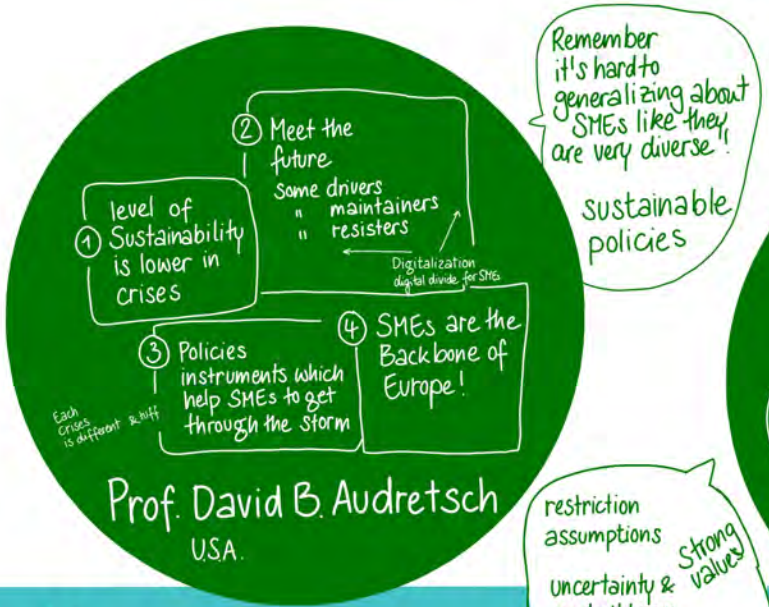 ① level of
Sustainability
is lower in
crises
② Meet the
future
Some drivers
" maintainers
" resisters
Digitalization
digital divide for SMEs
③ Policies
instruments which
help SMEs to get
through the storm
Each
crises
is different &
④ SMEs are the
Backbone of
Europe!
Prof. David B. Audretsch
U.S.A.
Remember
it's hard to
generalizing about
SMEs like they
are very diverse!
sustainable
policies
restriction
assumptions
Strong
values
uncertainty &